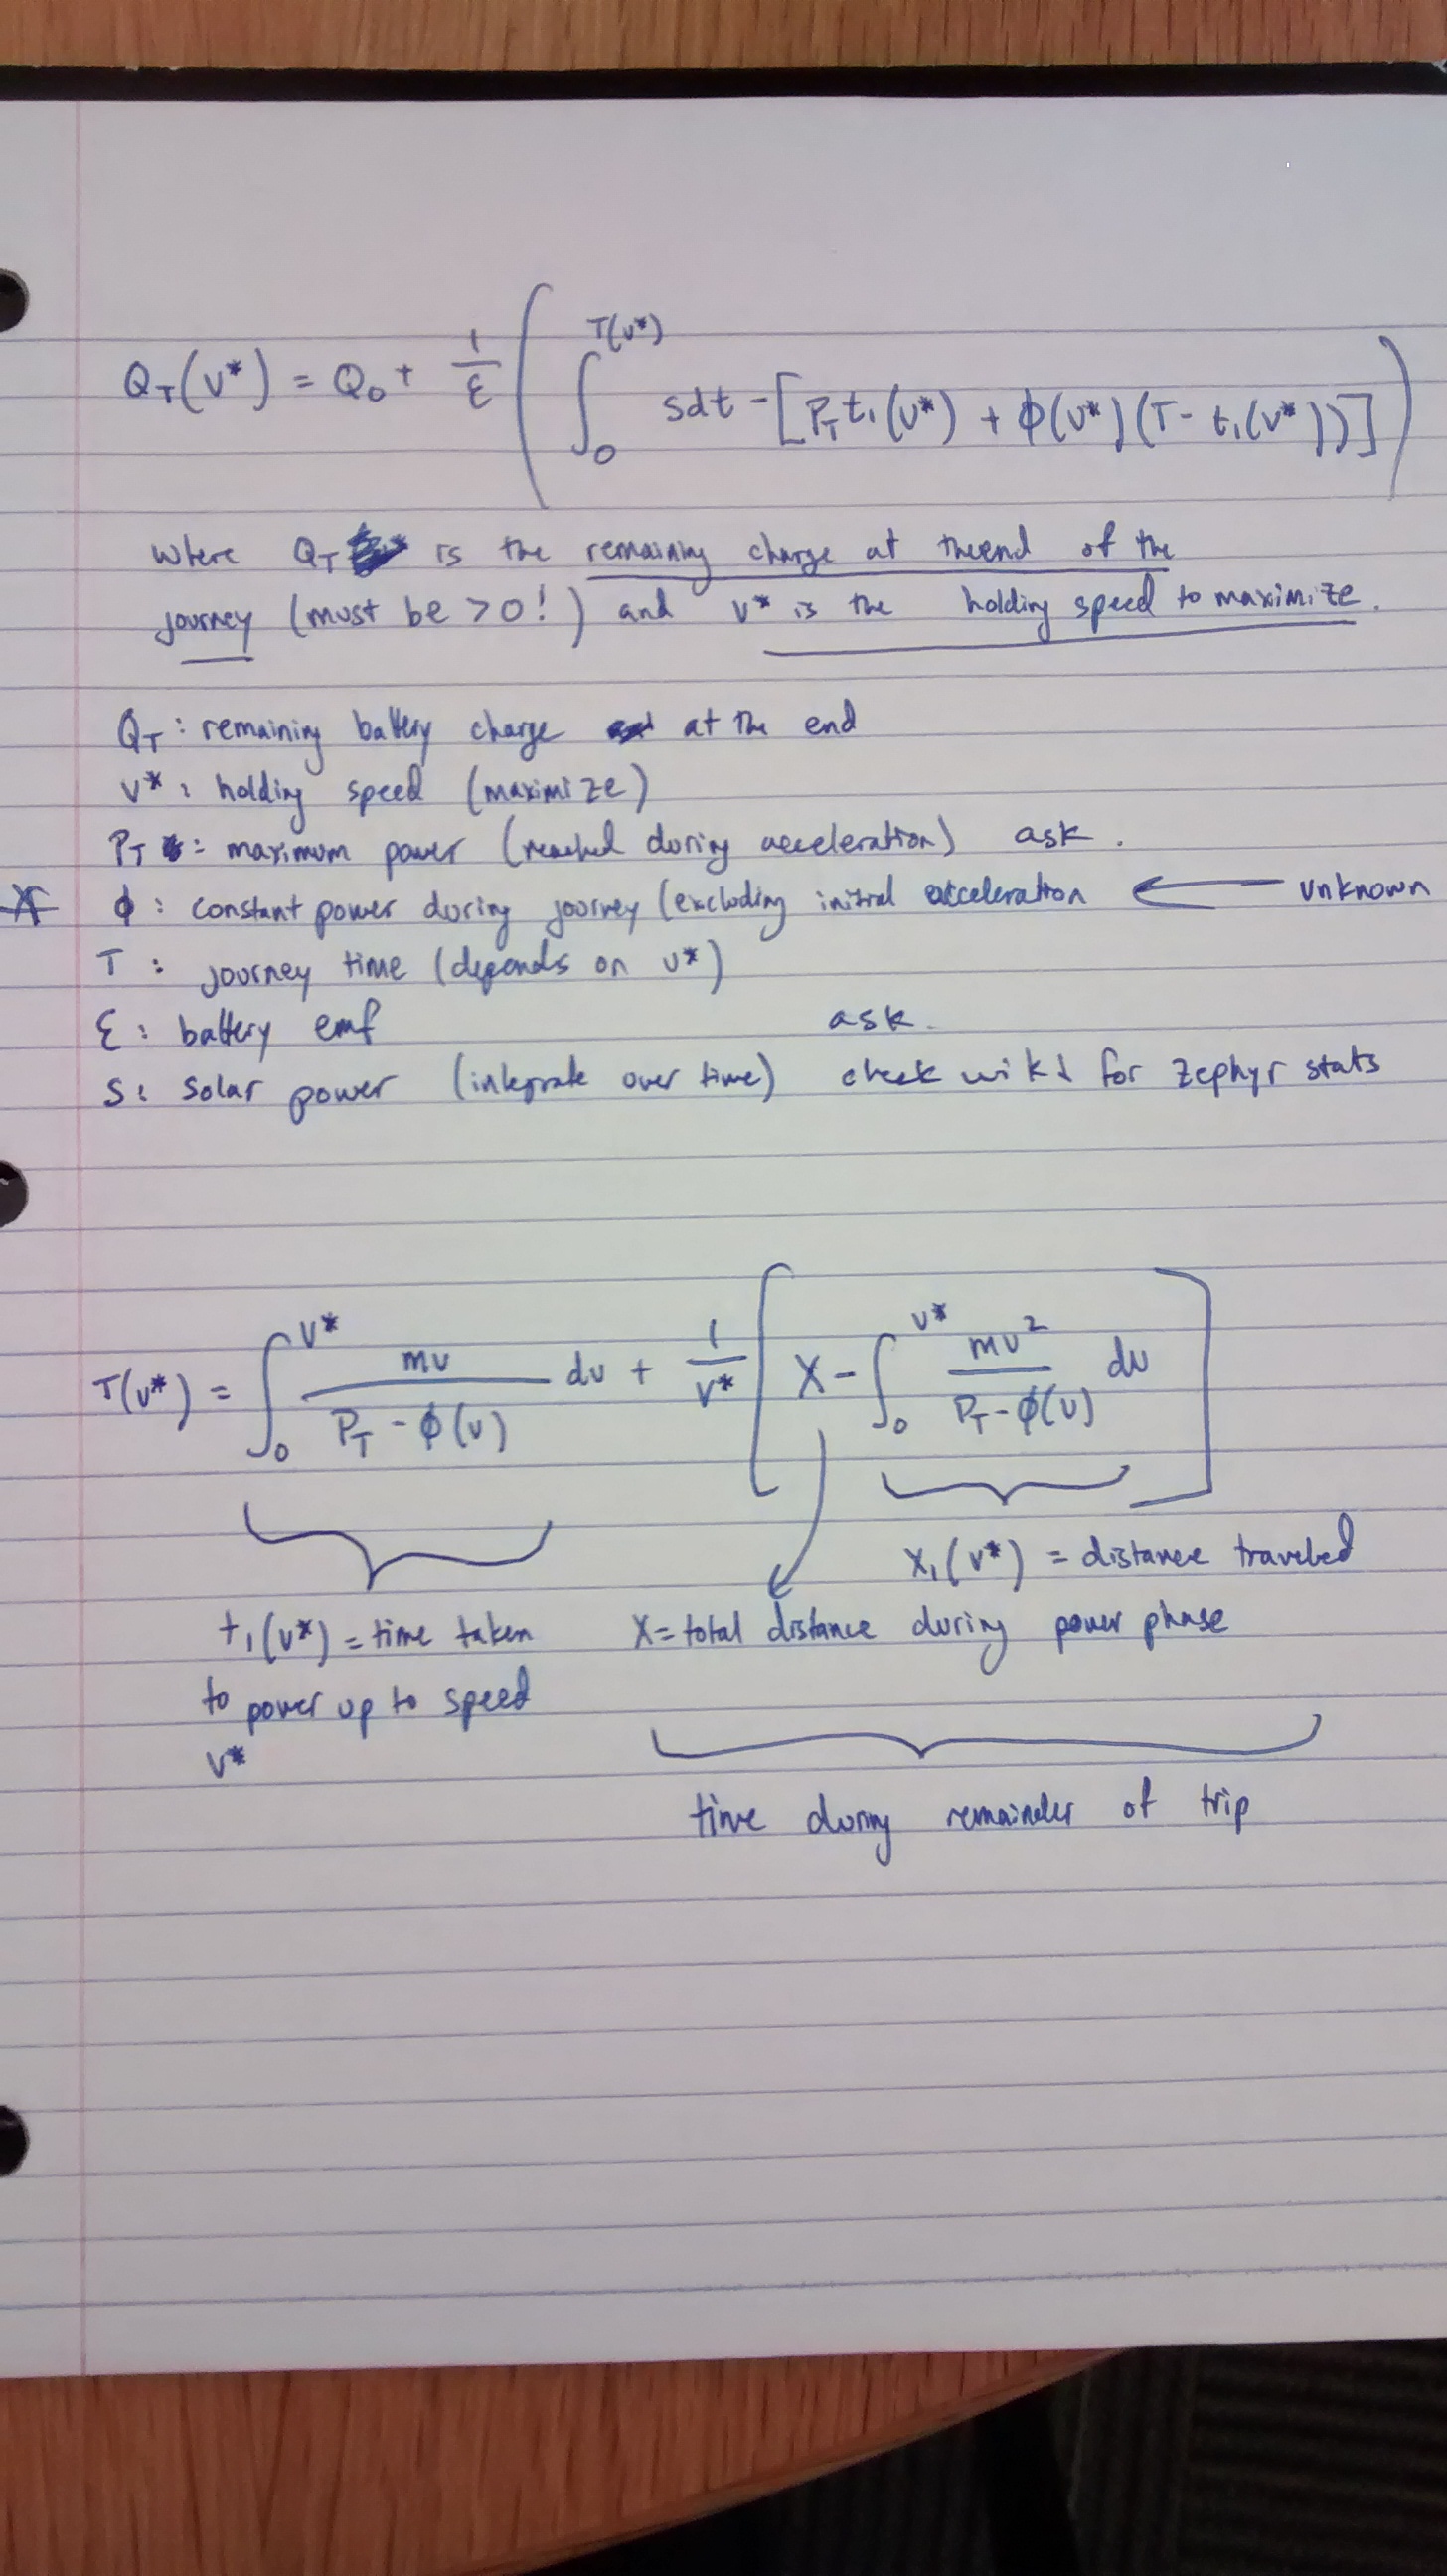 Q_T(v*) = Q_0 + 1/ℰ ( ∫_0^{T(v*)} s dt - [P_T t_1(v*) + ϕ(v*)(T - t_1(v*))] )
where Q_T is the remaining charge at the end of the
journey (must be > 0!) and v* is the holding speed to maximize.
Q_T : remaining battery charge at the end
v* : holding speed (maximize)
P_T : maximum power (reached during acceleration) ask.
* ϕ : constant power during journey (excluding initial acceleration ← unknown
T : journey time (depends on v*)
ℰ : battery emf ask.
S : solar power (integrate over time) check wiki for zephyr stats
T(v*) = ∫_0^{v*} mv / (P_T - ϕ(v)) dv + 1/v* [ X - ∫_0^{v*} mv² / (P_T - ϕ(v)) dv ]
x_1(v*) = distance traveled
t_1(v*) = time taken X = total distance during power phase
to power up to speed
v*
time during remainder of trip